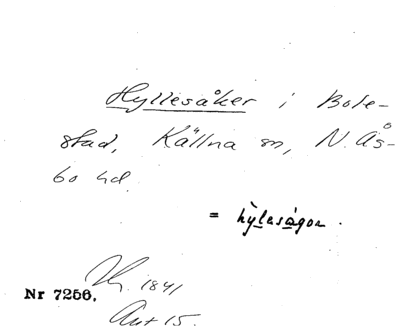 Hyllesåker i Bole-
stad, Källna sn, N. Ås-
bo hd
= hylesågor.
1841
Nr 7256.
Akt 15.